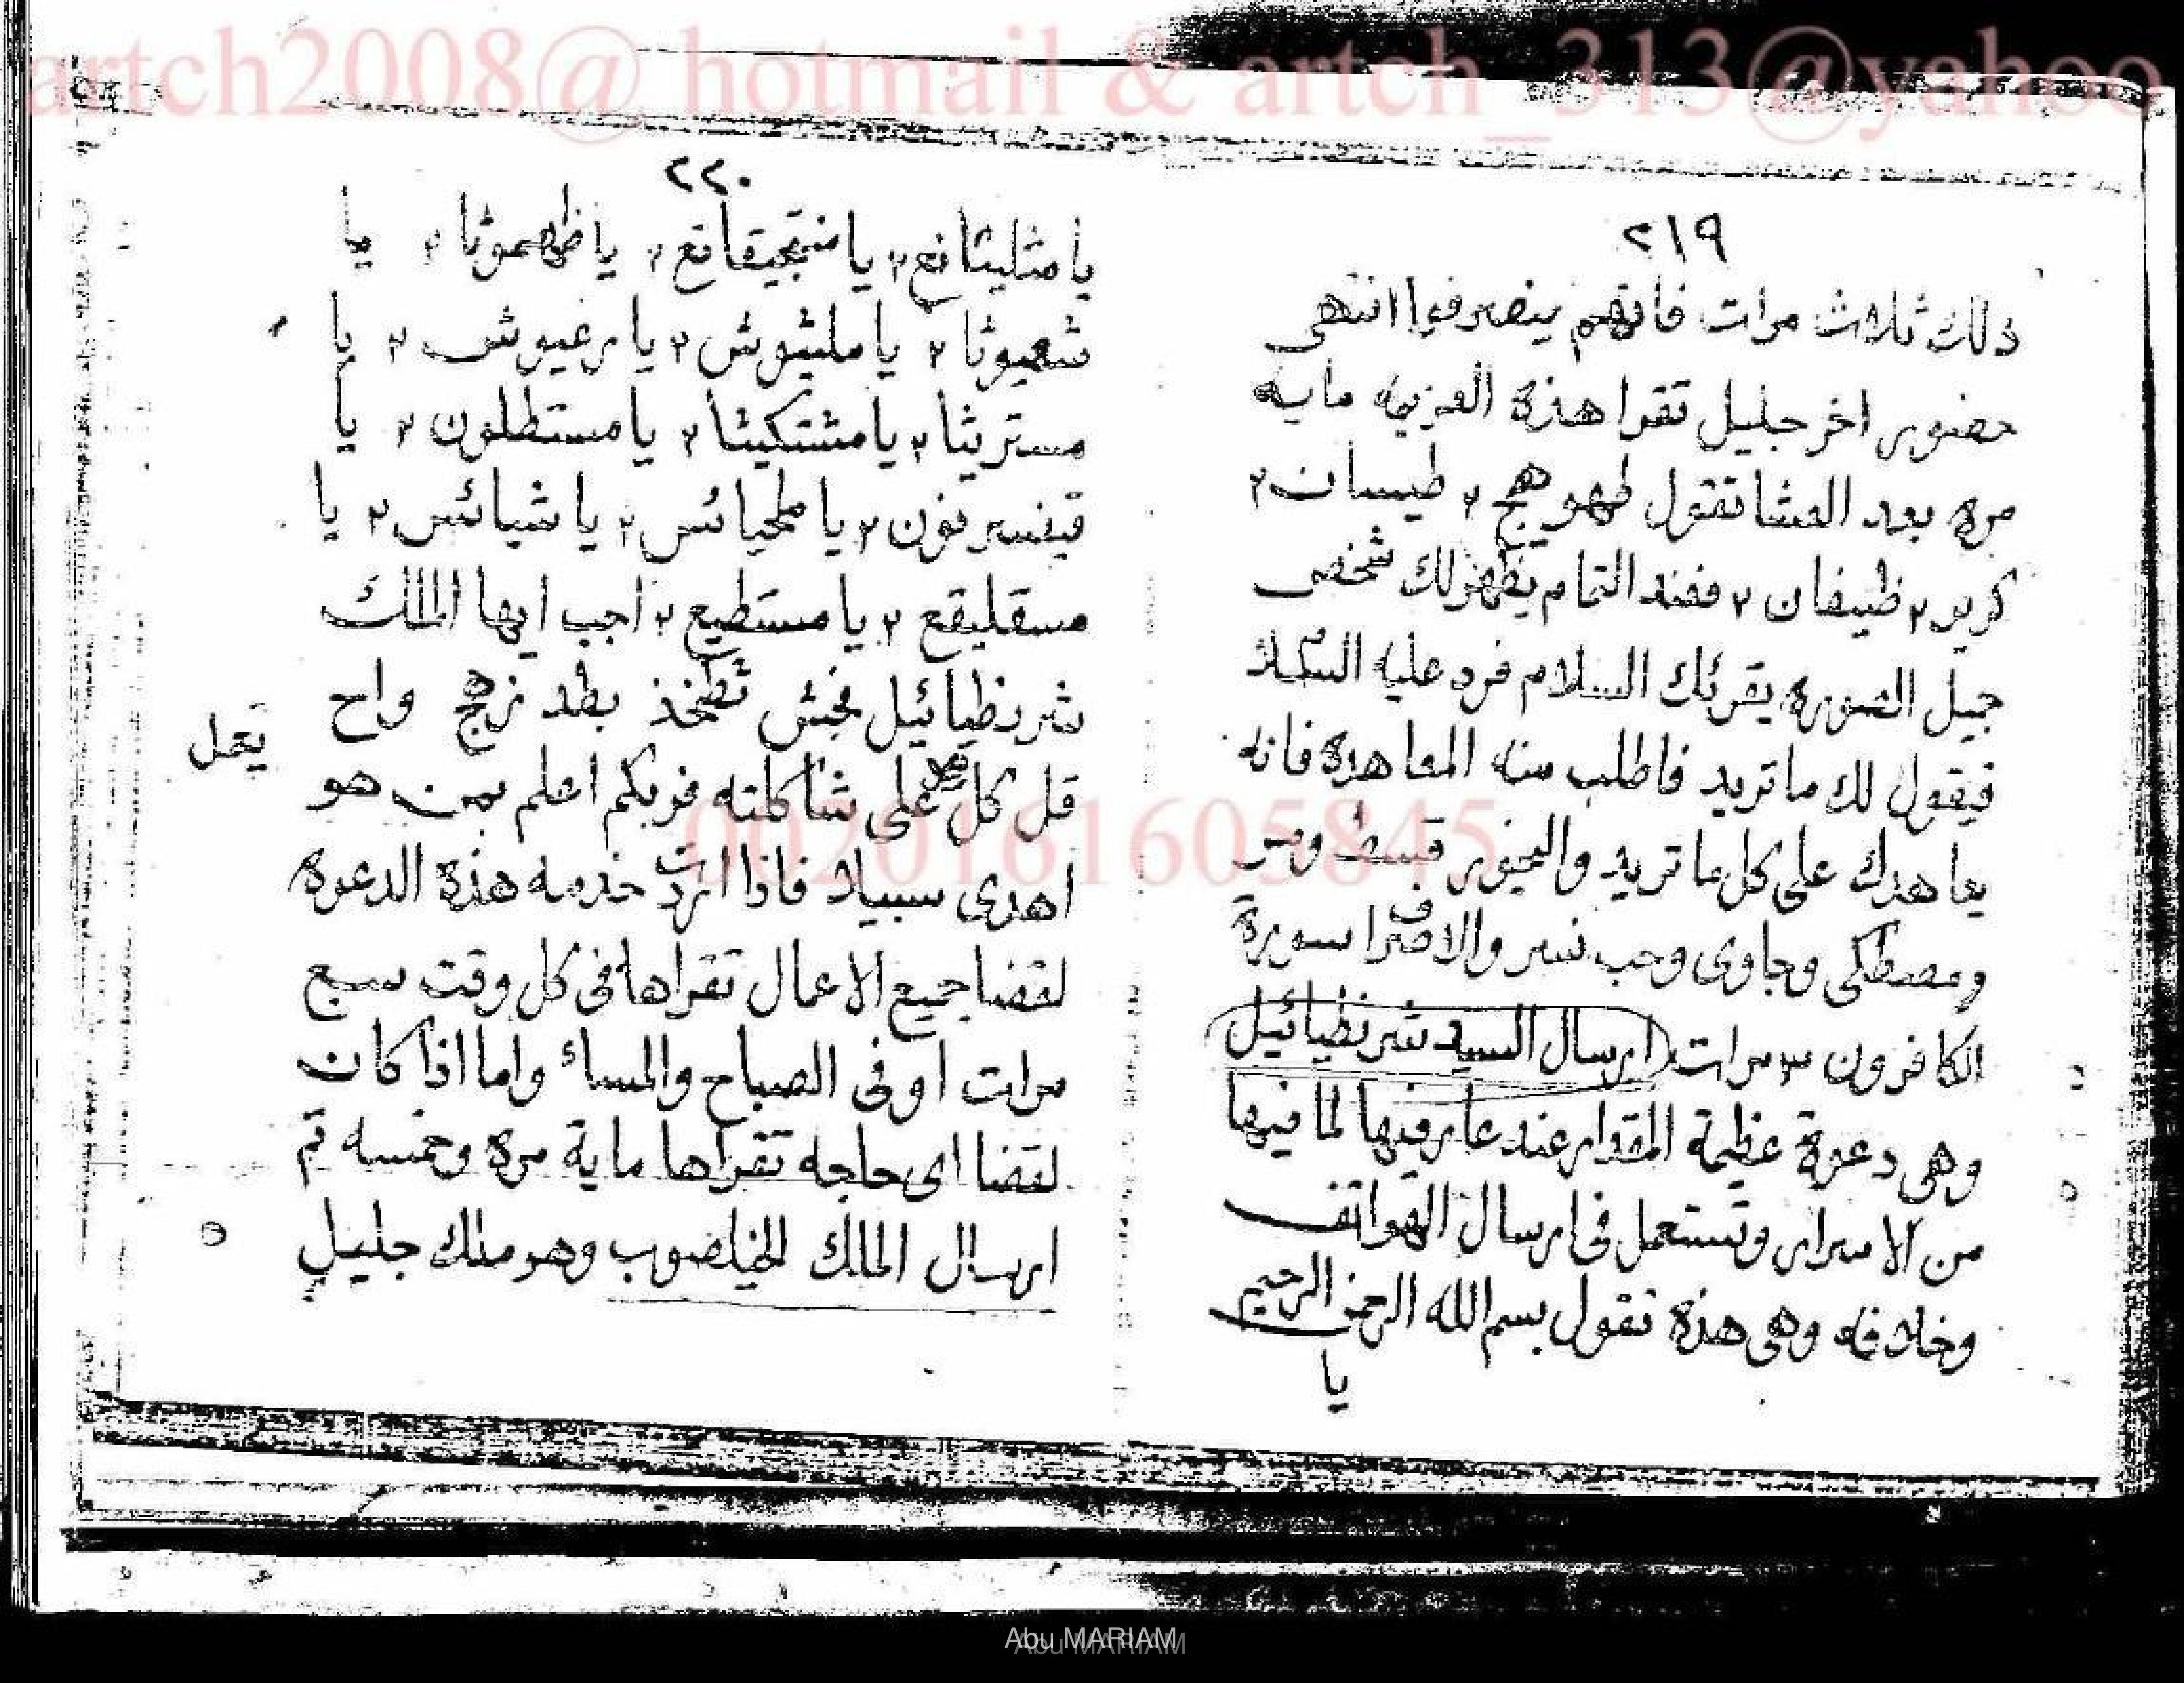 artch2008@ hotmail & artch_313@yahoo
٢١٩
ذلك ثلاث مرات فانهم ينصرفوا انتهى
حضور اخر جليل تقرا هذه العزيمه مايه
مره بعد العشا تقول طهوهج ٢ طيسان ٢
كرير ٢ ظيفان ٢ فعند التمام يظهر لك شخص
جميل الصوره يقرئك السلام فرد عليه السلا
فيقول لك ما تريد فاطلب منه المعاهدة فانه
يعاهدك على كل ما تريد والبخور قسط ومر
ومصطكى وجاوى وحب نسر والاصراف سورة
الكافرون ٣ مرات ارسال السيد شرنظيائيل
وهى دعوة عظيمة المقدار عند عارفيها لما فيها
من الاسرار وتستعمل فى ارسال الهواتف
وخلافه وهى هذه تقول بسم الله الرحمن الرحيم
يا
٢٢٠
يا مثليثانع ٢ يا يا ظهموثا ٢ يا
شعيوثا ٢ يا مليثوش ٢ يا رعيوش ٢ يا
مستريثا ٢ يا مشتكيثا ٢ يا مستطلون ٢ يا
قينسرنون ٢ يا طحيائس ٢ يا شيائس ٢ يا
مسقليقع ٢ يا مستطيع ٢ اجب ايها الملك
شرنظيائيل فجش ثظخذ بطد زهج واح
قل كل يعمل على شاكلته فربكم اعلم بمن هو
اهدى سبيلا فاذا اردت خدمه هذه الدعوة
لقضا جميع الاعمال تقراها فى كل وقت سبع
مرات او فى الصباح والمساء واما اذا كان
لقضا اى حاجه تقراها ماية مره وخمسه تم
ارسال الملك الخيلصوب وهو ملك جليل
0020161605845
Abu MARIAM